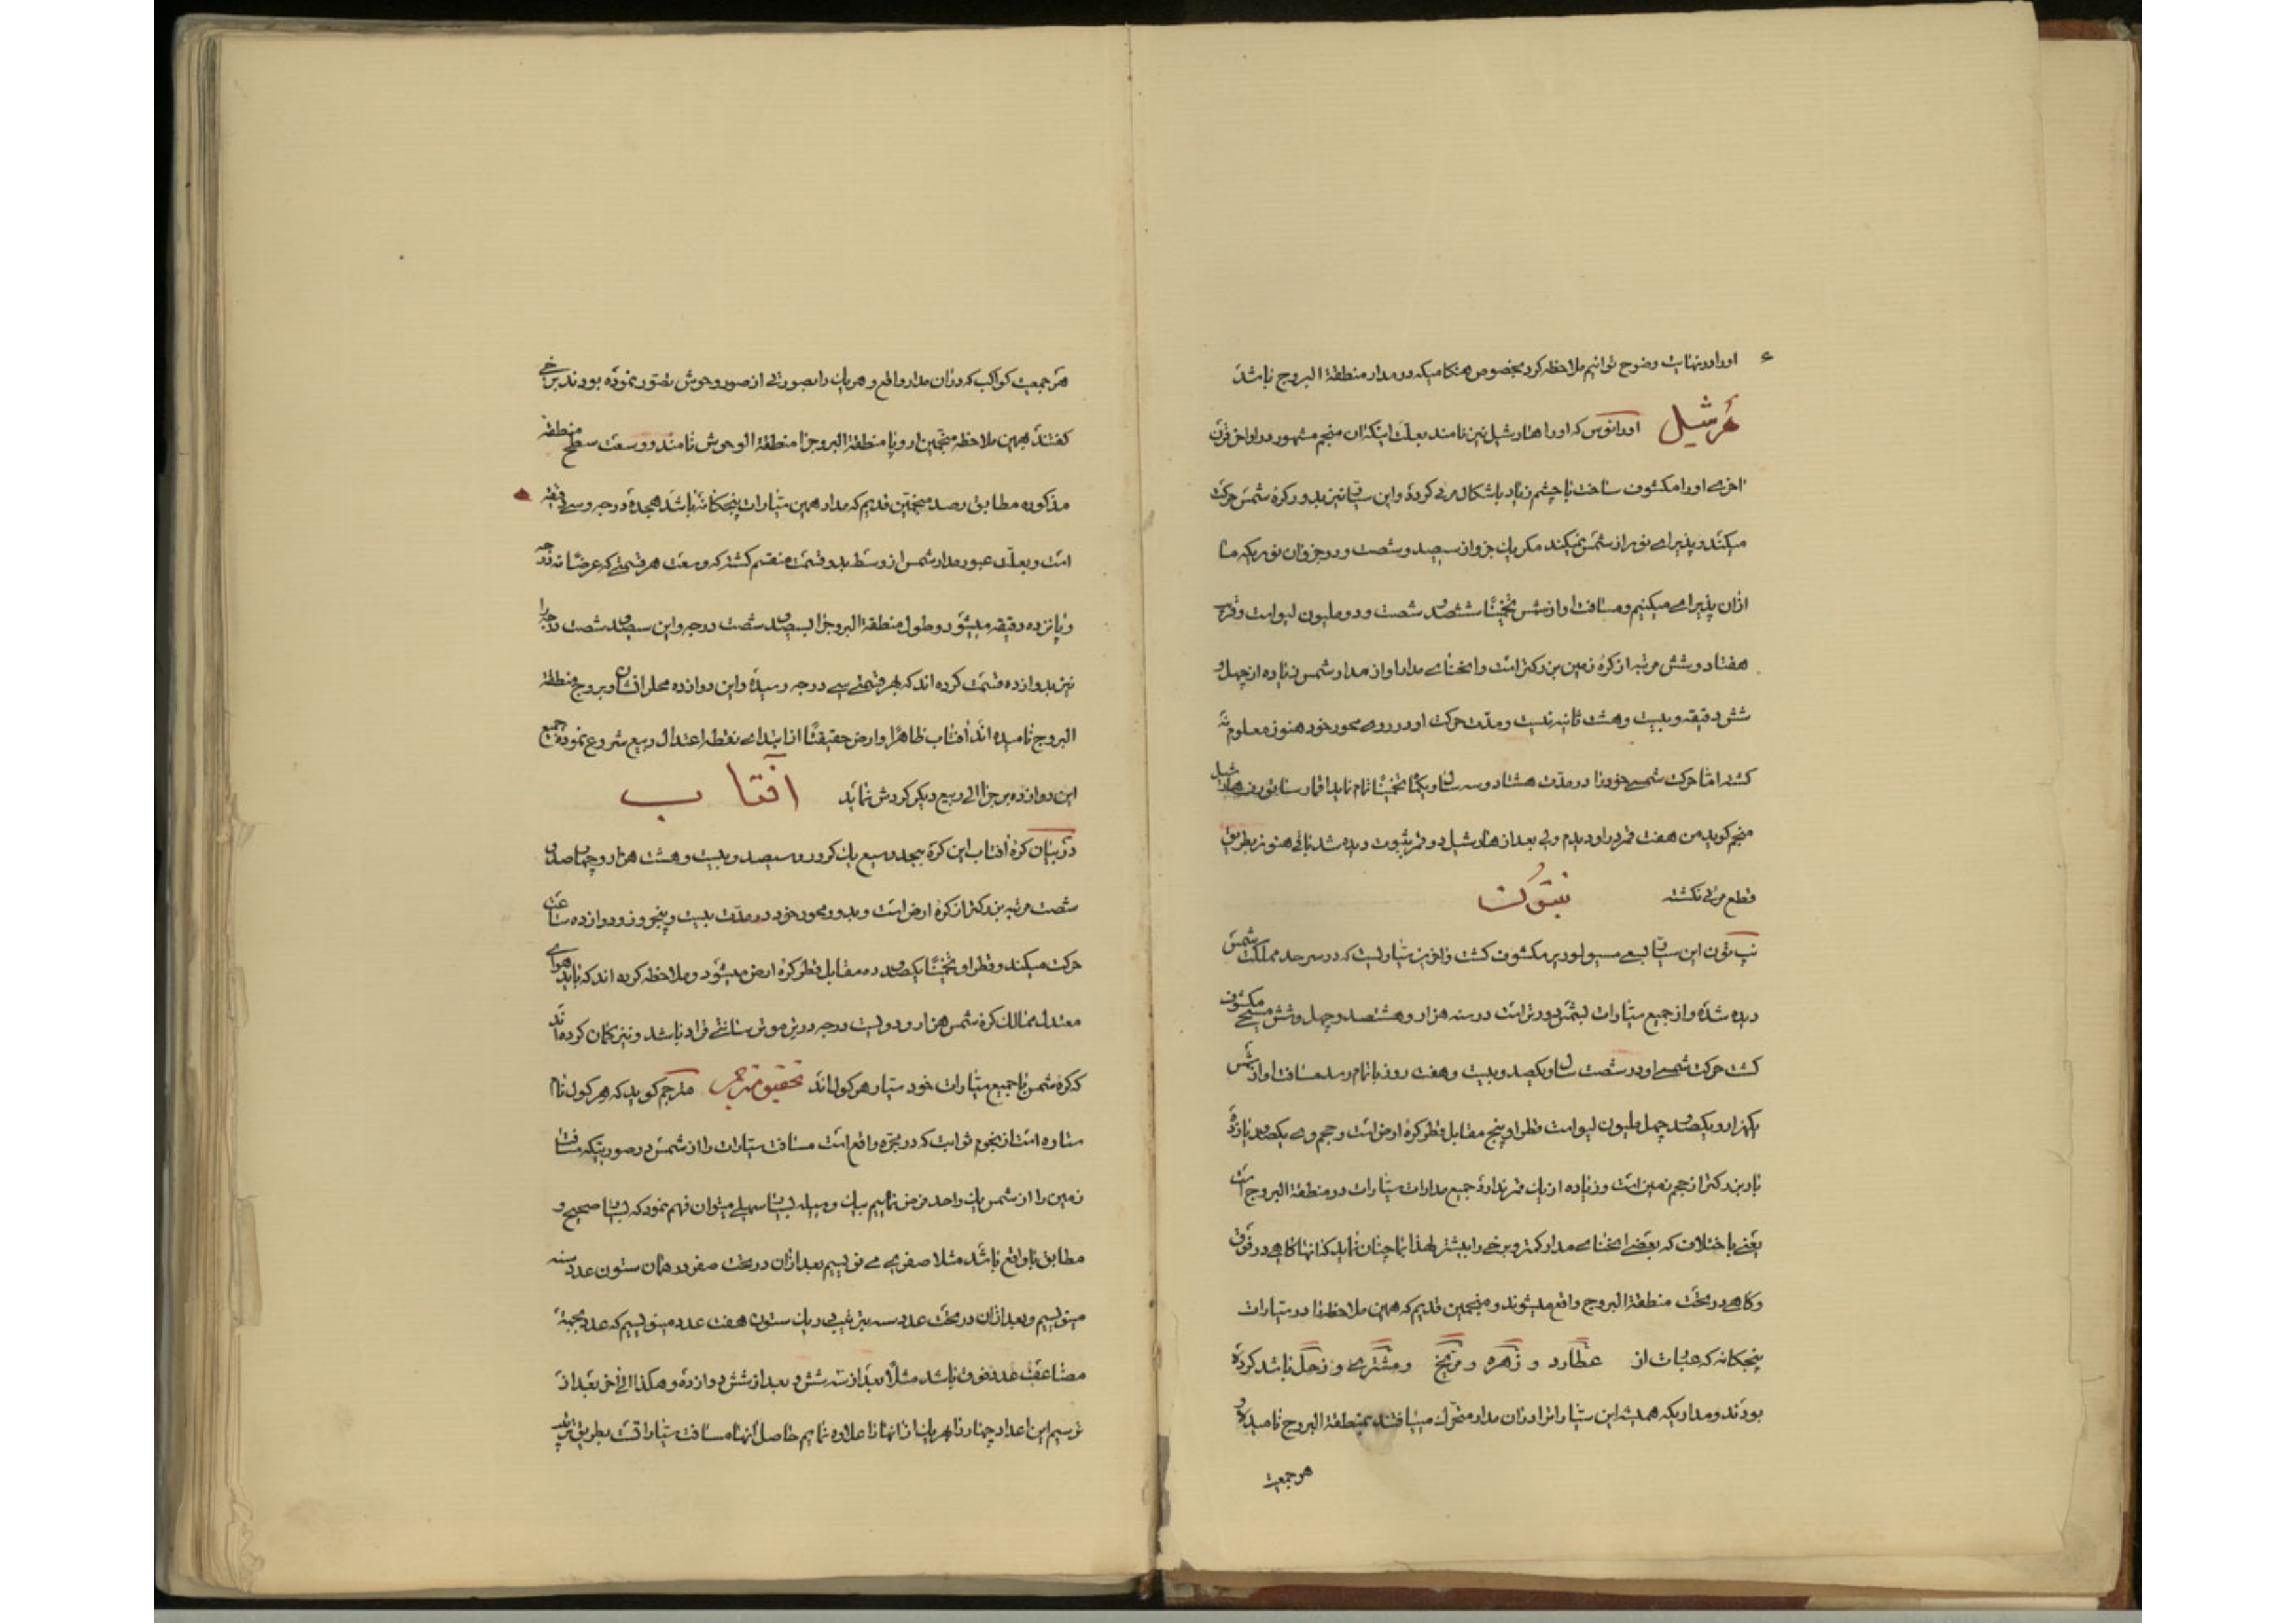 اورا در نهایت وضوح توانیم ملاحظه کرد بخصوص هنکامیکه در مدار منطقة البروج باشد
هرشیل اورانوس که اورا هارشیل نیز نامند بعلت اینکه ان منجم مشهور در اواخر قرن
اخری اورا مکشوف ساخت با چشم زیاد باشکال مرئی کردد و این سیاره نیز بدور کرهٔ شمس حرکت
میکند و پذیرای نور از شمس نمیکند مکر یک جزو از سیصد و شصت و دو جزو ان نوریکه ما
ازان پذیرای میکنیم و مسافت او از شمس تخمینًا ششصد شصت و دو ملیون لیو است و قدری
هفتاد و شش مرتبه از کرهٔ زمین بزرکتر است و انحنای مدار او از مدار شمس زیاده از چهل و
شش دقیقه و بیست و هشت ثانیه نیست و مدت حرکت او در روی محور خود هنوز معلوم نه
کشته اما حرکت شمسی خود را در مدت هشتاد و سه سال و یکماه تخمینًا تمام نماید اقمار هارشیل
منجم کوید من هفت قمر در او دیدم ولی بعد از هارشیل دو قمر بثبوت دیده شد باقی هنوز بطریق
قطع مرئی نکشته نپتون
نپ تون این سیاره بسعی مسیو لوریر مکشوف کشت و اخرین سیاریست که در سرحد مملکت شمس
دیده شده و از جمیع سیارات بشمس دورتر است در سنه هزار و هشتصد و چهل و شش مسیحی مکشوف
کشت حرکت شمسی او در شصت سال و یکصد و بیست و هفت روز باتمام رسد مسافت او از شمس
یکهزار و یکصد چهل ملیون لیو است قطر او پنج مقابل قطر کرهٔ ارض است و حجم وی یکصد پانزده
بار بزرکتر از حجم زمین است و زیاده از یک قمر ندارد جمیع مدارات سیارات در منطقة البروج است
یعنی باختلاف که بعضی انحنای مدار کمتر و برخی را بیشتر لهذا بما چنان نماید که انها کاهی در فوق
و کاهی در تحت منطقة البروج واقع میشوند و منجمین قدیم که همین ملاحظه را در سیارات
پنجکانه که عبارت از عطارد و زهره و مریخ و مشتری و زحل باشد کرده
بودند و مداریکه همیشه این سیارات را دران مدار متحرک مییافتند بمنطقة البروج نامیده و
هر جمعیت
هر جمعیت کواکب که دران مدار واقع و هر یک را بصورتی از صور وحوش تصور نموده بودند برخی
کفتند بهمین ملاحظه منجمین اروپا منطقة البروج را منطقة الوحوش نامند و وسعت سطح منطقة
مذکوره مطابق رصد منجمین قدیم که مدار همین سیارات پنجکانه باشد هجده درجه و سی دقیقه
است و بعلت عبور مدار شمس از وسط بدو قسمت منقسم کشته که وسعت هر قسمتی که عرضا نه درجه
و پانزده دقیقه میشود و طول منطقة البروج را بسیصد شصت درجه و این سیصد شصت درجه را
نیز بدوازده قسمت کرده اند که بهر قسمتی سی درجه رسیده و این دوازده محل را نشان و بروج منطقة
البروج نامیده اند افتاب ظاهرًا و ارض حقیقتًا از ابتدای نقطه اعتدال ربیع شروع نموده جمیع
این دوازده برج را الی ربیع دیکر کردش نماید آفتاب
در بیان کرهٔ افتاب این کره بیحد وسیع یک کرور و سیصد و بیست و هشت هزار و چهار صد و
شصت مرتبه بزرکتر از کرهٔ ارض است و بدور محور خود در مدت بیست و پنج روز و دوازده ساعت
حرکت میکند و قطر او تخمینًا یکصد و ده مقابل قطر کرهٔ ارض میشود و ملاحظه کرده اند که باید هوای
معتدل ممالک کرهٔ شمس هزار و دویست درجه در ترمومتر سانتی قراد باشد و نیز کمان کرده اند
که کرهٔ شمس با جمیع سیارات خود سیار هرکول اند تحقیق مترجم مترجم کوید که هرکول نام
ستاره است از نجوم ثوابت که در مجره واقع است مسافت سیارات را از شمس در صورتیکه مسافت
زمین را از شمس یک واحد فرض نماییم بیک وسیله بسیار سهلی میتوان فهم نمود که بسیار صحیح و
مطابق با واقع باشد مثلا صفریرا می نویسیم بعد ازان در تحت صفر در همان ستون عدد سه
مینویسیم و بعد ازان در تحت عدد سه بترتیبی در یک ستون هفت عدد مینویسیم که عدد تحتیه
مضاعف عدد فوق باشد مثلًا بعد از سه شش و بعد از شش دوازده و هکذا الی اخر بعد از
ترسیم این اعداد چهار را بهر یک از انها علاوه نماییم حاصل انها مسافت سیاراتست بطریق ترتیب